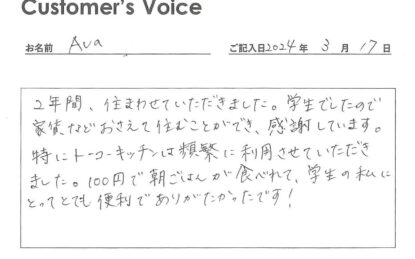 Customer's Voice
お名前 Ava ご記入日2024年 3月 17日
2年間、住まわせていただきました。学生でしたので
家賃などおさえて住むことができ、感謝しています。
特にトーコーキッチンは頻繁に利用させていただき
ました。100円で朝ごはんが食べれて、学生の私に
とってとても便利でありがたかったです！